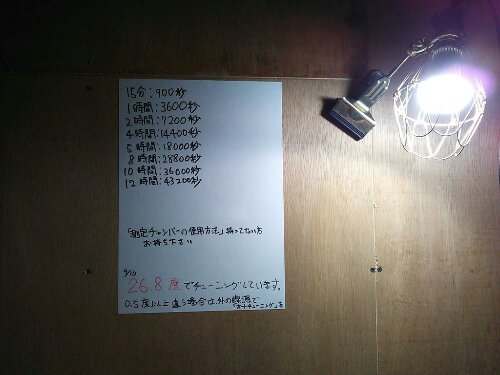 15分:900秒
1時間:3600秒
2時間:7200秒
4時間:14400秒
5時間:18000秒
8時間:28800秒
10時間:36000秒
12時間:43200秒
「測定チャンバーの使用方法」持ってない方
お持ち下さい
9/10
26.8度でチューニングしています。
0.5度以上違う場合は外の電源で
「オートチューニング」を